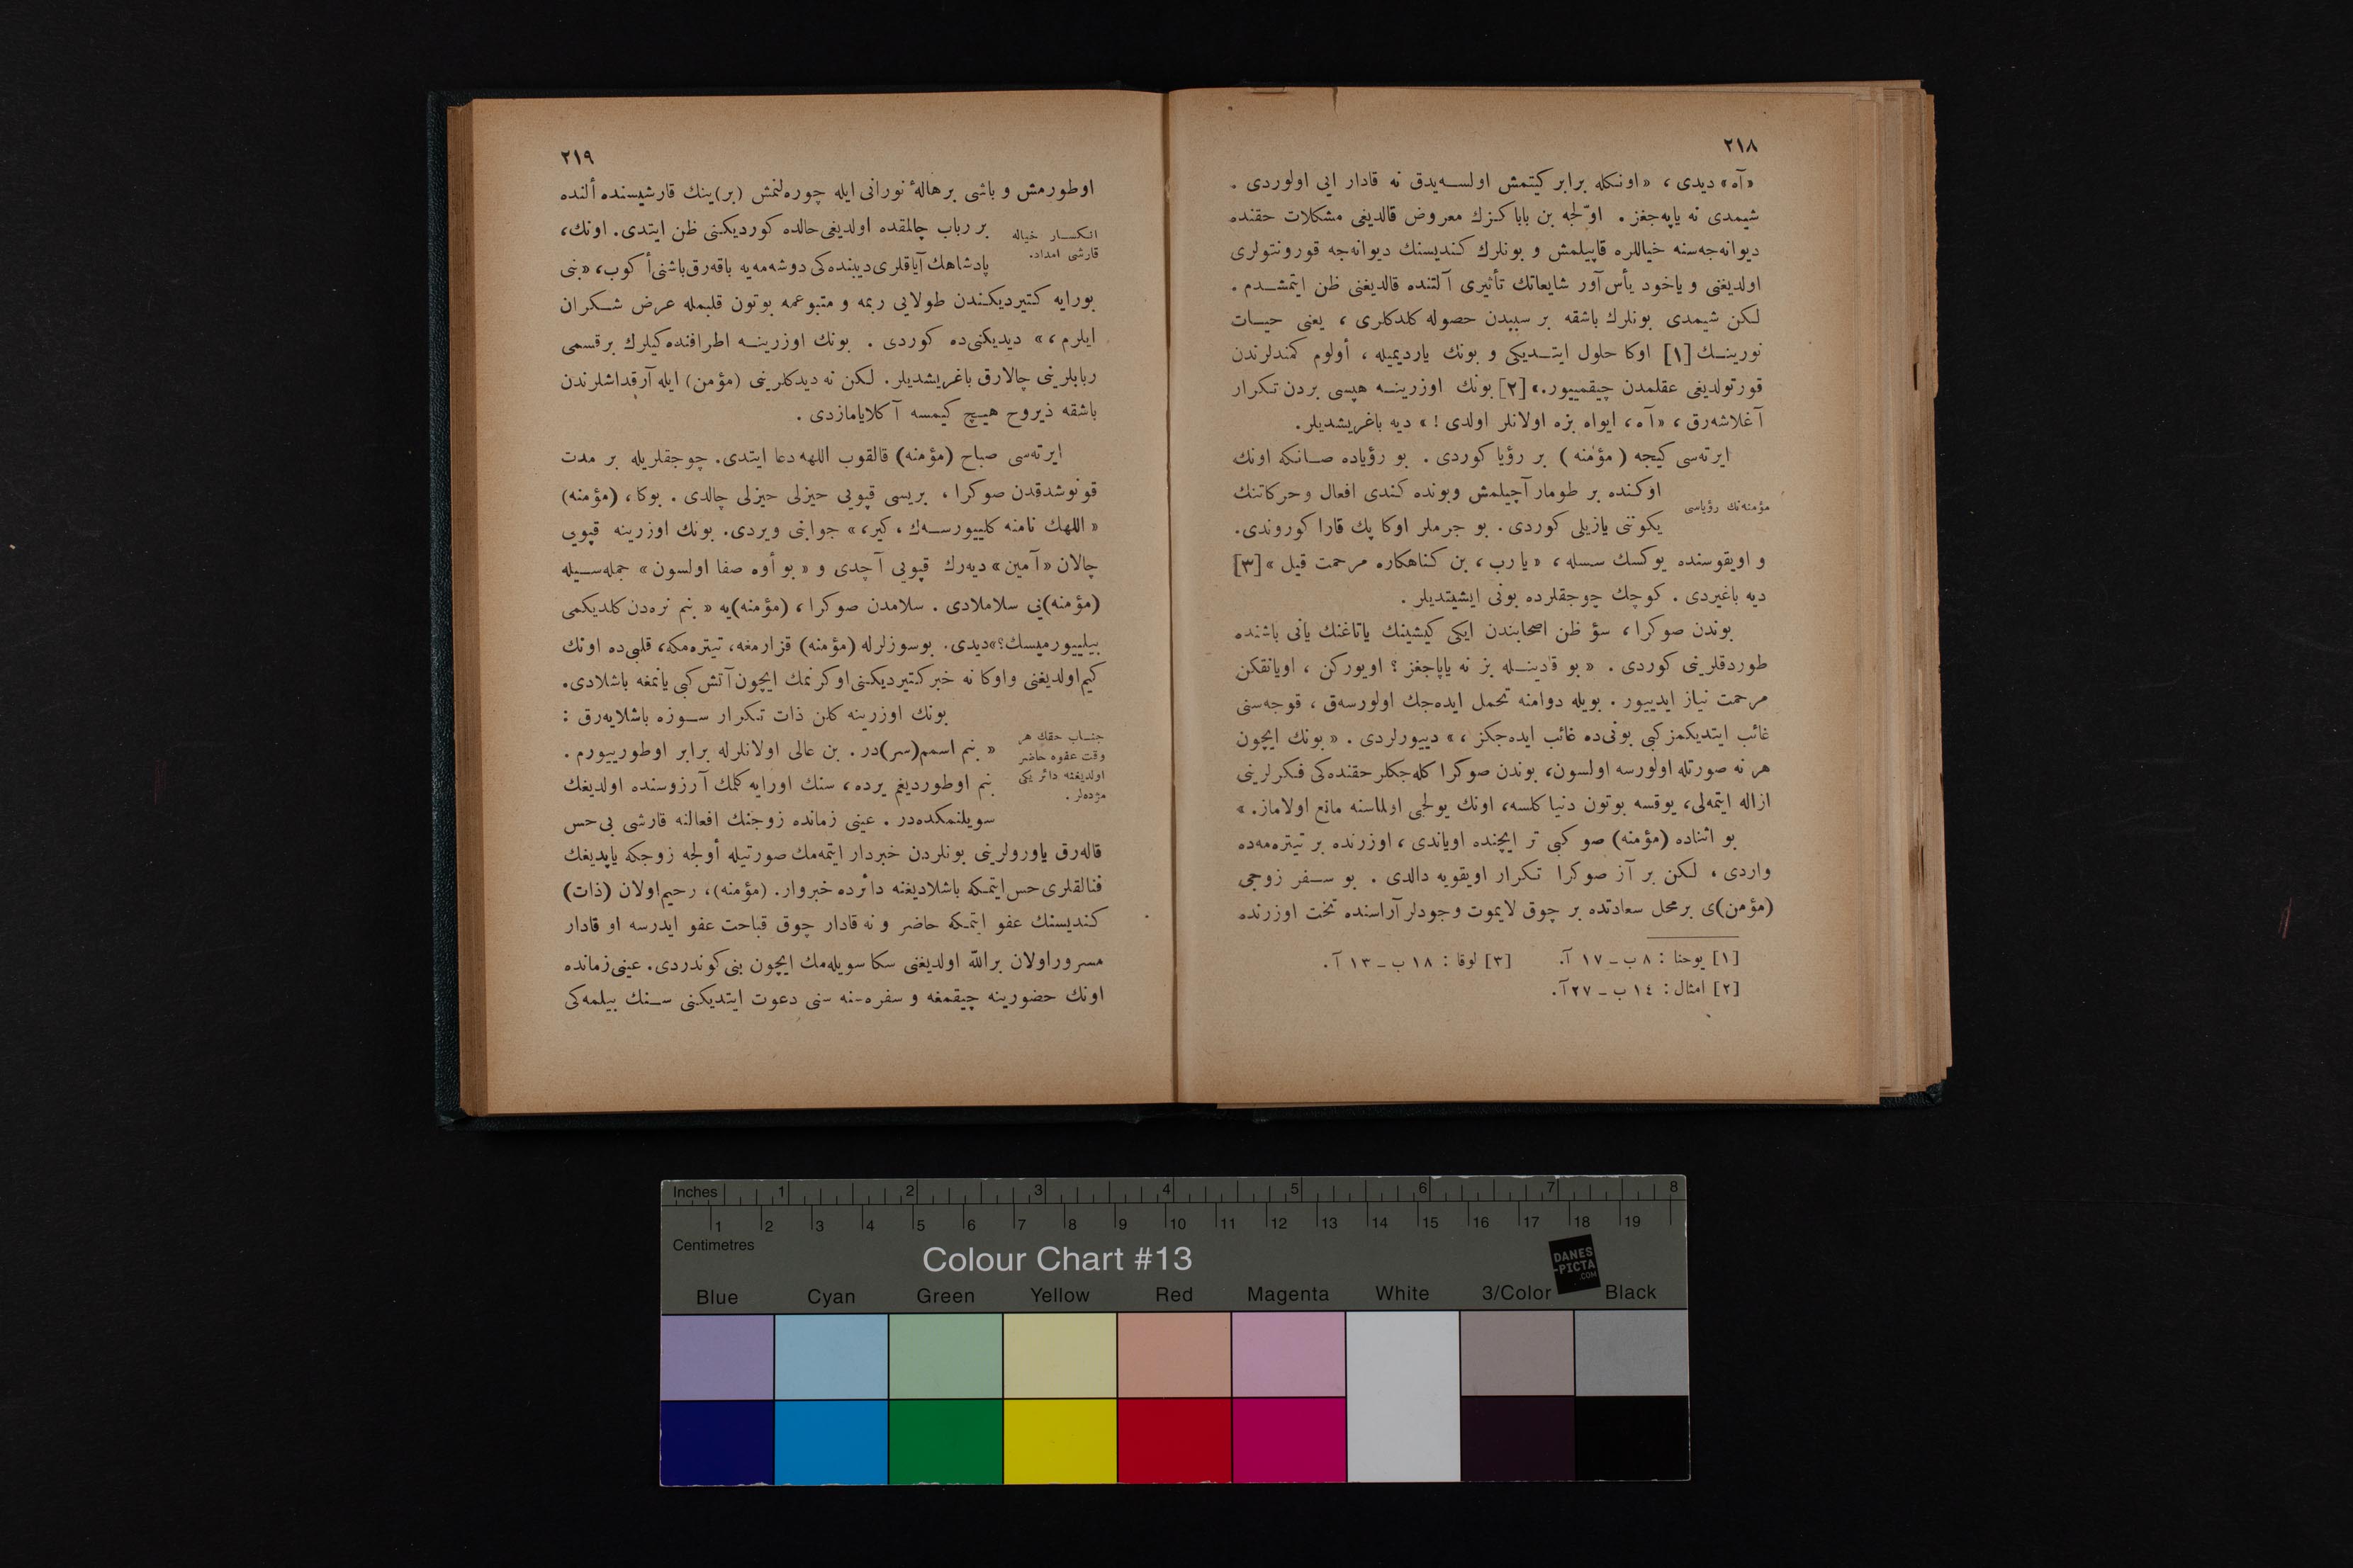 ٢١٨
«آه» دیدی ، «اونكله برابر كیتمش اولسه‌یدق نه قادار ایی اولوردی .
شیمدی نه یاپه‌جغز . اوّلجه بن باباكزك معروض قالدیغی مشكلات حقنده
دیوانه‌جه‌سنه خیاللره قاپیلمش و بونلرك كندیسنك دیوانه‌جه قورونتولری
اولدیغنی و یاخود یأس آور شایعاتك تأثیری آلتنده قالدیغنی ظن ایتمشدم .
لكن شیمدی بونلرك باشقه بر سببدن حصوله كلدكلری ، یعنی حیات
نورینك [١] اوكا حلول ایتدیكی و بونك یاردیمیله ، أولوم كمندلرندن
قورتولدیغی عقلمدن چیقمییور.» [٢] بونك اوزرینه هپسی بردن تكرار
آغلاشه‌رق ، «آه ، ایواه بزه اولانلر اولدی !» دیه باغریشدیلر.
ایرته‌سی كیجه ( مؤمنه ) بر رؤیا كوردی . بو رؤیاده صانكه اونك
مؤمنه‌نك رؤیاسی
اوكنده بر طومار آچیلمش وبونده كندی افعال وحركاتنك
یكوننی یازیلی كوردی . بو جرملر اوكا پك قارا كوروندی.
و اویقوسنده یوكسك سسله ، «یا رب ، بن كناهكاره مرحمت قیل» [٣]
دیه باغیردی . كوچك چوجقلرده بونی ایشیتدیلر .
بوندن صوكرا ، سؤ ظن اصحابندن ایكی كیشینك یاتاغنك یانی باشنده
طوردقلرینی كوردی . «بو قادینله بز نه یاپاجغز ؟ اویوركن ، اویانقكن
مرحمت نیاز ایدییور . بویله دوامنه تحمل ایده‌جك اولورسه‌ق ، قوجه‌سنی
غائب ایتدیكمز كبی بونی‌ده غائب ایده‌جكز ،» دییورلردی . «بونك ایچون
هر نه صورتله اولورسه اولسون، بوندن صوكرا كله‌جكلر حقنده‌كی فكرلرینی
ازاله ایتمه‌لی، یوقسه بوتون دنیا كلسه، اونك یولجی اولماسنه مانع اولاماز. »
بو اثناده (مؤمنه) صو كبی تر ایچنده اویاندی ، اوزرنده بر تیتره‌مه‌ده
واردی ، لكن بر آز صوكرا تكرار اویقویه دالدی . بو سفر زوجی
(مؤمن)ی بر محل سعادتده بر چوق لایموت وجودلر آراسنده تخت اوزرنده
[١] یوحنا : ٨ ب ـ ١٧ آ. [٣] لوقا : ١٨ ب ـ ١٣ آ .
[٢] امثال : ١٤ ب ـ ٢٧ آ.
٢١٩
اوطورمش و باشی بر هالهٔ نورانی ایله چوره‌لنمش (بر)ینك قارشیسنده ألنده
انكسار خیاله
قارشی امداد.
بر رباب چالمقده اولدیغی حالده كوردیكنی ظن ایتدی. اونك،
پادشاهك آیاقلری دیبنده‌كی دوشه‌مه‌یه باقه‌رق باشنی أكوب، «بنی
بورایه كتیردیكندن طولایی ربمه و متبوعمه بوتون قلبمله عرض شكران
ایلرم ،» دیدیكنی‌ده كوردی . بونك اوزرینه اطرافنده‌كیلرك بر قسمی
ربابلرینی چالارق باغریشدیلر. لكن نه دیدكلرینی (مؤمن) ایله آرقداشلرندن
باشقه ذیروح هیچ كیمسه آكلایامازدی .
ایرته‌سی صباح (مؤمنه) قالقوب اللهه دعا ایتدی. چوجقلریله بر مدت
قونوشدقدن صوكرا ، بریسی قپویی حیزلی حیزلی چالدی . بوكا ، (مؤمنه)
« اللهك نامنه كلییورسه‌ك ، كیر ،» جوابنی ویردی. بونك اوزرینه قپویی
چالان «آمین» دیه‌رك قپویی آچدی و «بو أوه صفا اولسون» جمله‌سیله
(مؤمنه)یی سلاملادی . سلامدن صوكرا ، (مؤمنه)یه « بنم نره‌دن كلدیكمی
بیلییورمیسك؟» دیدی. بو سوزلرله (مؤمنه) قزارمغه، تیتره‌مكه، قلبی‌ده اونك
كیم اولدیغنی واوكا نه خبر كتیردیكنی اوكرنمك ایچون آتش كبی یانمغه باشلادی.
بونك اوزرینه كلن ذات تكرار سوزه باشلایه‌رق :
جناب حقك هر
وقت عفوه حاضر
اولدیغنه دائر یكی
مژده‌لر .
« بنم اسمم (سر)در . بن عالی اولانلرله برابر اوطورییورم .
بنم اوطوردیغم یرده ، سنك اورایه كلمك آرزوسنده اولدیغك
سویلنمكده‌در . عینی زمانده زوجنك افعالنه قارشی بی حس
قاله‌رق یاورولرینی بونلردن خبردار ایتمه‌مك صورتیله أولجه زوجكه یاپدیغك
فنالقلری حس ایتمكه باشلادیغنه دائرده خبر وار. (مؤمنه)، رحیم اولان (ذات)
كندیسنك عفو ایتمكه حاضر و نه قادار چوق قباحت عفو ایدرسه او قادار
مسرور اولان بر اللّه اولدیغنی سكا سویله‌مك ایچون بنی كوندردی. عینی زمانده
اونك حضورینه چیقمغه و سفره‌سنه سنی دعوت ایتدیكنی سنك بیلمه‌كی
Inches 1 2 3 4 5 6 7 8
1 2 3 4 5 6 7 8 9 10 11 12 13 14 15 16 17 18 19
Centimetres
Colour Chart #13
DANES
-PICTA
.COM
Blue Cyan Green Yellow Red Magenta White 3/Color Black